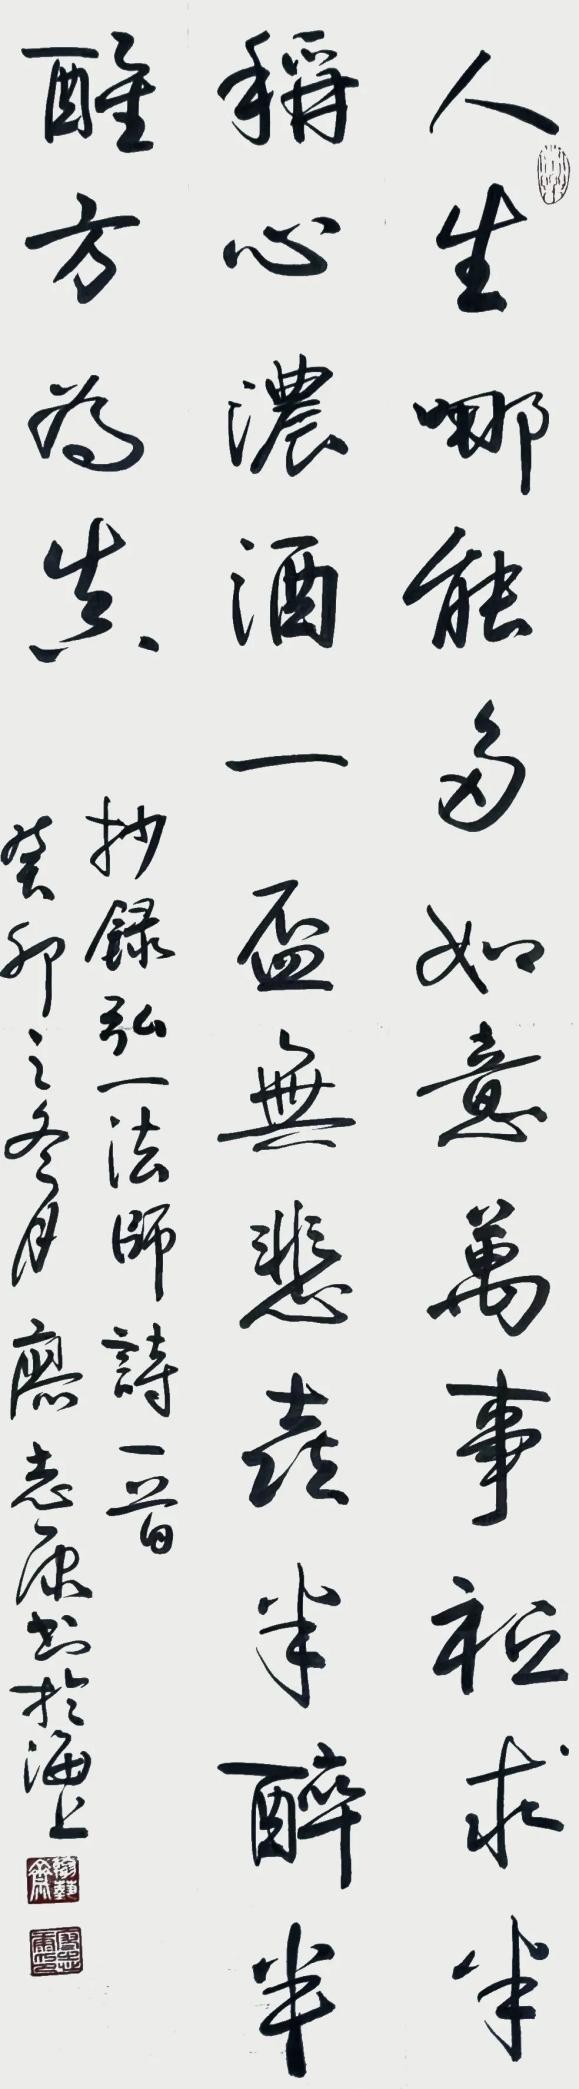 人生哪能多如意萬事祗求半
稱心濃酒一盃無悲喜半醉半
醒方為真
抄錄弘一法師詩一首
癸卯之冬月廖志康書於海上